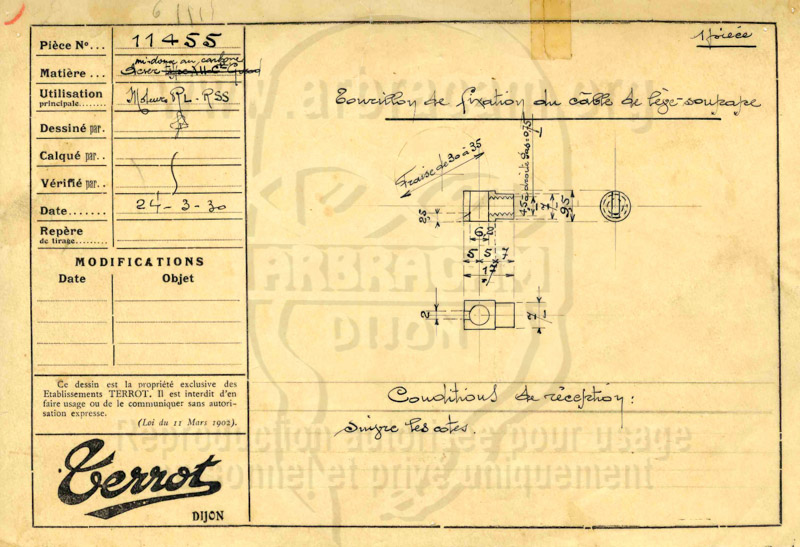 Pièce N°... 11455
1 pièce
mi-doux au carbone
Matière ... Acier
Utilisation
principale....... Moteurs RL - RSS
Tourillon de fixation du câble de lève-soupape
Dessiné par.
Calqué par..
Vérifié par..
Date....... 24-3-30
Repère
de tirage........
MODIFICATIONS
Date Objet
Fraise de 30 à 35
à droite pas=0,75
6,2
5 5 7
17
9,5
2
7
ARBRACAM
DIJON
www.arbracam.org
Ce dessin est la propriété exclusive des
Etablissements TERROT. Il est interdit d'en
faire usage ou de le communiquer sans autori-
sation expresse.
(Loi du 11 Mars 1902).
Conditions de réception:
Suivre les cotes.
Reproduction autorisée pour usage
personnel et privé uniquement
Terrot
DIJON